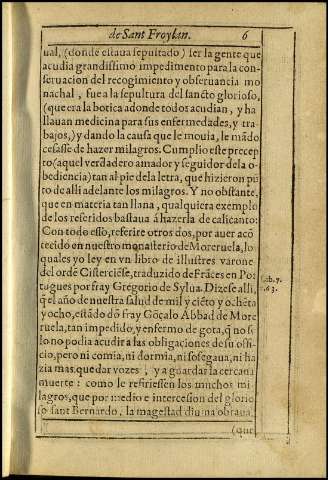 de Sant Froylan. 6
ual, (donde estaua sepultado) ser la gente que
acudia grandissimo impedimento para la con-
seruacion del recogimiento y obseruancia mo
nachal, fue a la sepultura del sancto glorioso,
(que era la botica adonde todos acudian, y ha
llauan medicina para sus enfermedades, y tra-
bajos,) y dando la causa que le mouia, le mãdo
cessasse de hazer milagros. Cumplio este precep
to (aquel verdadero amador y seguidor dela o-
bediencia) tan al pie de la letra, que hizieron pũ
to de alli adelante los milagros. Y no obstante,
que en materia tan llana, qualquiera exemplo
de los referidos bastaua á hazerla de calicanto:
Con todo esso, referire otros dos, por auer acõ
tecido en nuestro monasterio de Moreruela, lo
quales yo ley en vn libro de illustres varone
del ordē Cisterciēse, traduzido de Frãces en Por
tugues por fray Gregorio de Sylua. Dizese alli,
q̃ el año de nuestra salud de mil y ciēto y ochēta
y ocho, estãdo dõ fray Gõçalo Abbad de More
ruela, tan impedido, y enfermo de gota, q̃ no so
lo no podia acudir a las obligaciones de su offi-
cio, pero ni comia, ni dormia, ni sosegaua, ni ha
zia mas que dar vozes, y a guardar la cercana
muerte: como le refiriessen los muchos mi-
lagros, que por medio e intercesion del glorio
so sant Bernardo, la magestad diuina obraua,
(que
63.